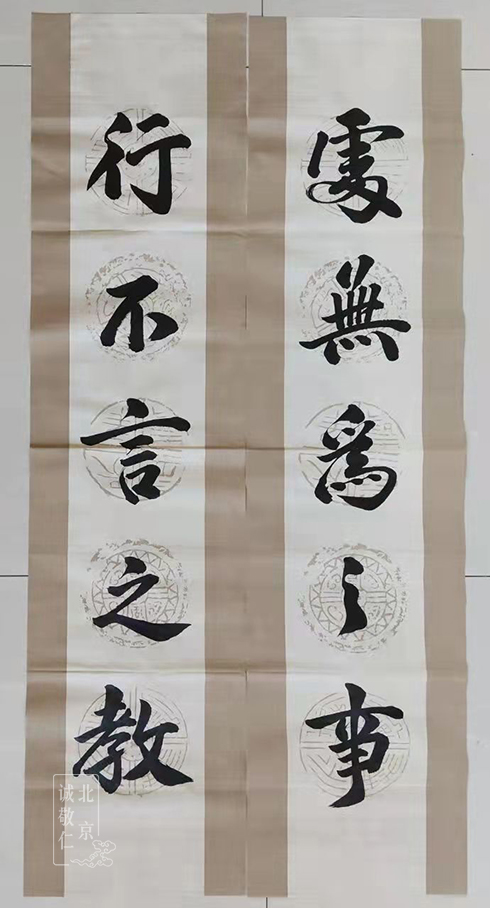 處無為之事
行不言之教
北京
诚敬仁